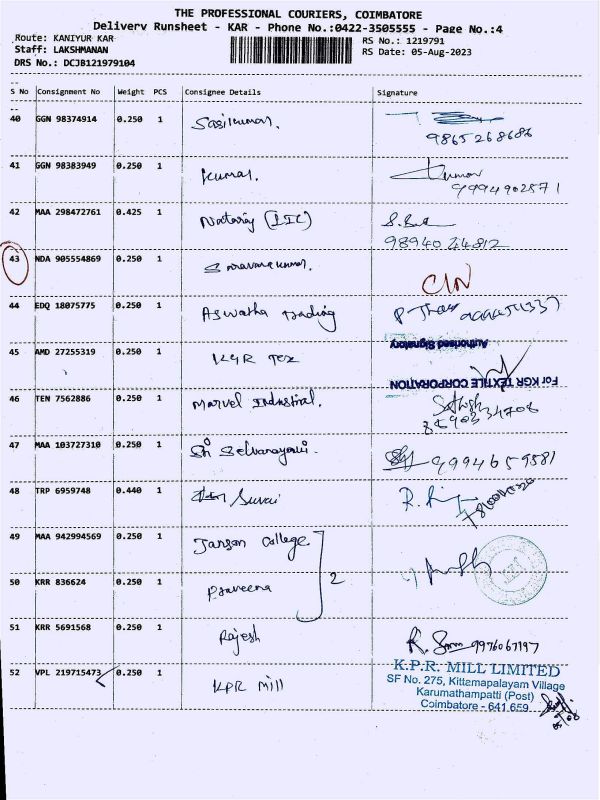 THE PROFESSIONAL COURIERS, COIMBATORE
Delivery Runsheet - KAR - Phone No.:0422-3505555 - Page No.:4
Route: KANIYUR KAR
RS No.: 1219791
Staff: LAKSHMANAN
RS Date: 05-Aug-2023
DRS No.: DCJB121979104
S No Consignment No Weight PCS Consignee Details Signature
40 GGN 98374914 0.250 1 Sasikumar.
9865268686
41 GGN 98383949 0.250 1 Kumar. Kumar
9994902571
42 MAA 298472761 0.425 1 Nataraj (LIC)
9894024812
43 NDA 905554869 0.250 1
C/N
44 EDQ 18075775 0.250 1 Aswatha Trading
45 AMD 27255319 0.250 1 KGR Tex
Authorised Signatory
For KGR TEXTILE CORPORATION
46 TEN 7562886 0.250 1 Marvel Industrial. Sathish
47 MAA 103727310 0.250 1 Sri Selvanayaki. 9994659581
48 TRP 6959748 0.440 1
49 MAA 942994569 0.250 1 Janson College
2
50 KRR 836624 0.250 1 Praveena
51 KRR 5691568 0.250 1 Rajesh
9976067197
52 VPL 219715473 0.250 1 KPR Mill
K.P.R. MILL LIMITED
SF No. 275, Kittampalayam Village
Karumathampatti (Post)
Coimbatore - 641 659